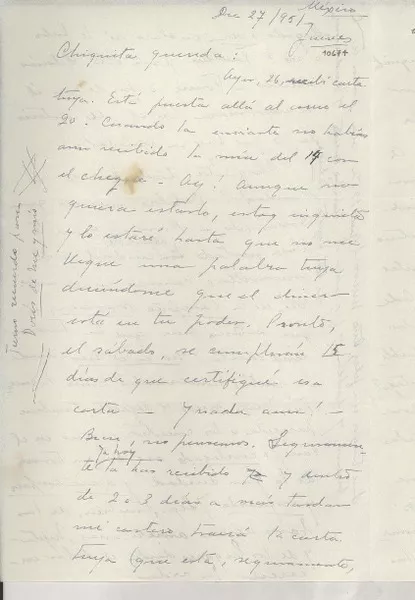 Dic 27/951 México
Jueves
10674
Chiquita querida:
Ayer, 26, recibí carta
tuya. Está puesta allá al correo el
20. Cuando la enviaste no habías
aun recibido la mía del 14 con
el cheque. Ay! Aunque no
quiera estarlo, estoy inquieta
y lo estaré hasta que no me
llegue una palabra tuya
diciéndome que el dinero
está en tu poder. Pronto,
el sábado, se cumplirán 15
días de que certifiqué esa
carta - Y nada aun! -
Bueno, no pensemos. Seguramen-
ya hoy
te la has recibido y dentro
de 2 o 3 días a más tardar
mi cartero traerá la carta
tuya (que está, seguramente,
Tierno recuerdo para
Doris de me y mío